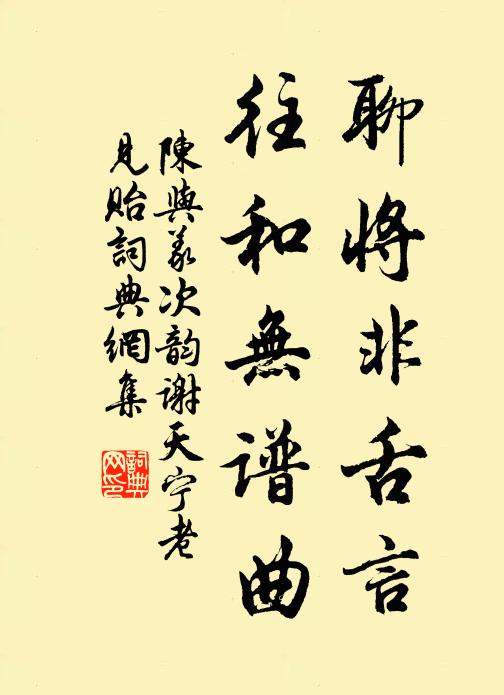 聊將非舌言
往和無譜曲
陳與義次韵谢天宁老
見貽詞典網集
詞典
网印